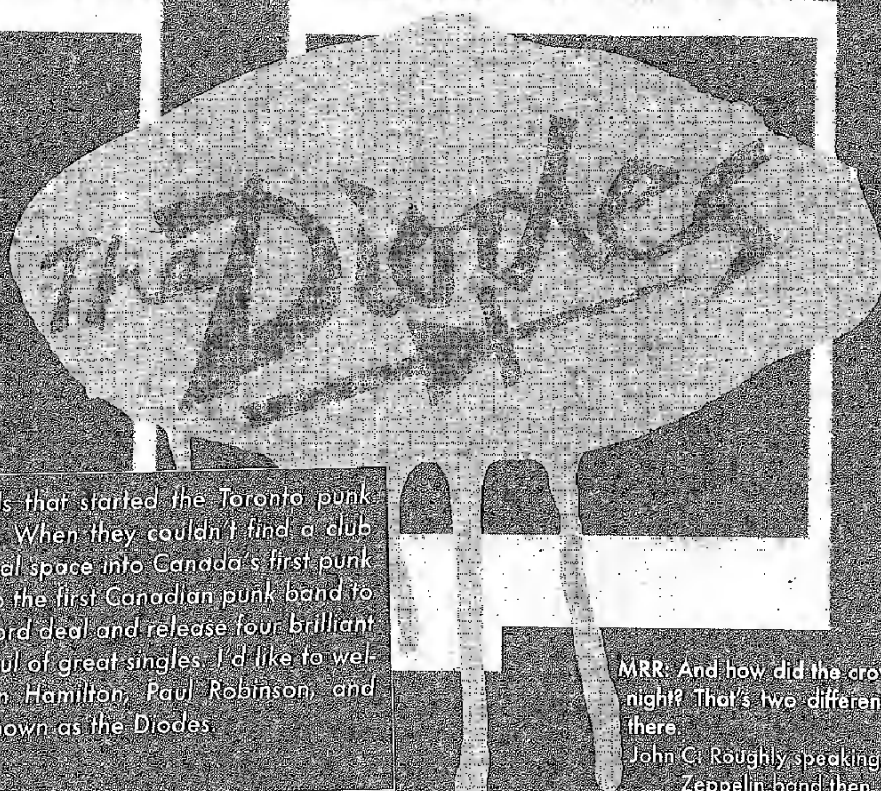 The Diodes
s that started the Toronto punk
When they couldn't find a club
al space into Canada's first punk
the first Canadian punk band to
ord deal and release four brilliant
ul of great singles. I'd like to wel-
Hamilton, Paul Robinson, and
nown as the Diodes.
MRR: And how did the cro
night? That's two differen
there.
John C: Roughly speaking
Zeppelin band then